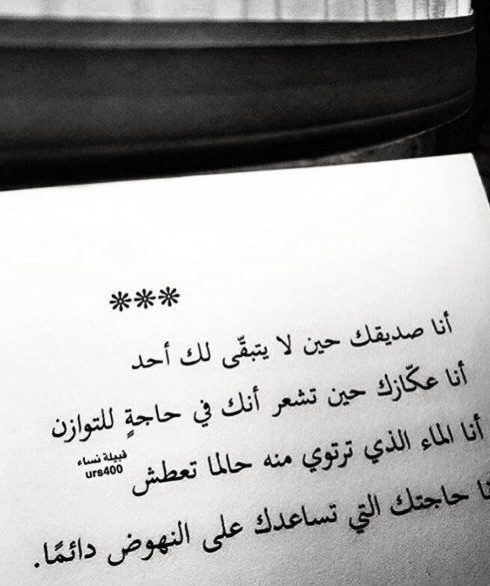 ***
أنا صديقك حين لا يتبقّى لك أحد
أنا عكّازك حين تشعر أنك في حاجةٍ للتوازن
أنا الماء الذي ترتوي منه حالما تعطش
قبيلة نساء
urs400
نا حاجتك التي تساعدك على النهوض دائمًا.